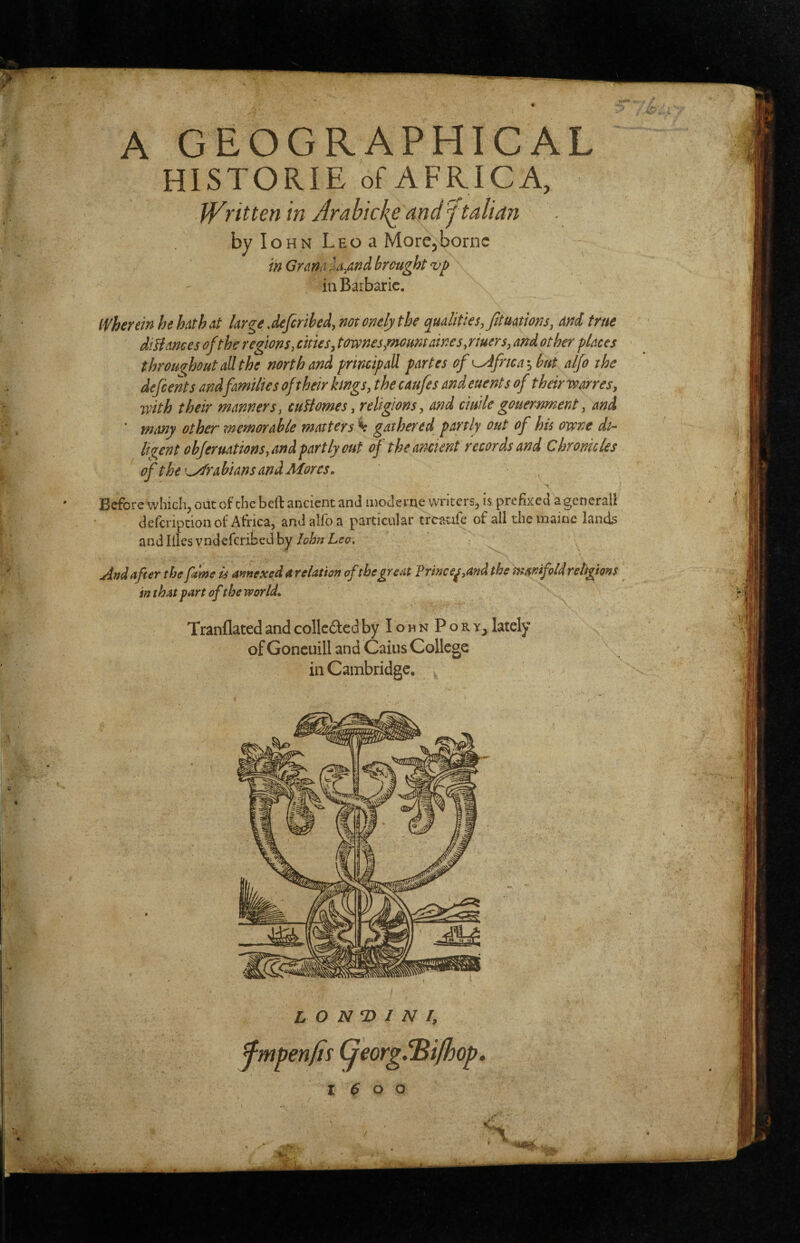 A GEOGRAPHICAL
HISTORIE of AFRICA,
Written in Arabicke and Italian
by IOHN LEO a More, borne
in Granada, and brought vp
in Barbarie.
Wherein he hath at large deſcribed, not onely the qualities, ſituations, and true
diſtances of the regions, cities, townes, mountaines, riuers, and other places
throughout all the north and principall partes of Africa; but alſo the
deſcents and families of their kings, the cauſes and euents of their warres,
with their manners, cuſtomes, religions, and ciuile gouernment, and
many other memorable matters: gathered partly out of his owne di-
ligent obſeruations, and partly out of the ancient records and Chronicles
of the Arabians and Mores.
Before which, out of the beſt ancient and moderne writers, is prefixed a generall
deſcription of Africa, and alſo a particular treatiſe of all the maine lands
and Iſles vndeſcribed by Iohn Leo.
And after the ſame is annexed a relation of the great Princes, and the manifold religions
in that part of the world.
Tranſlated and collected by IOHN PORY, lately
of Goneuill and Caius College
in Cambridge.
LONDINI,
Impenſis Georg. Biſhop.
1600